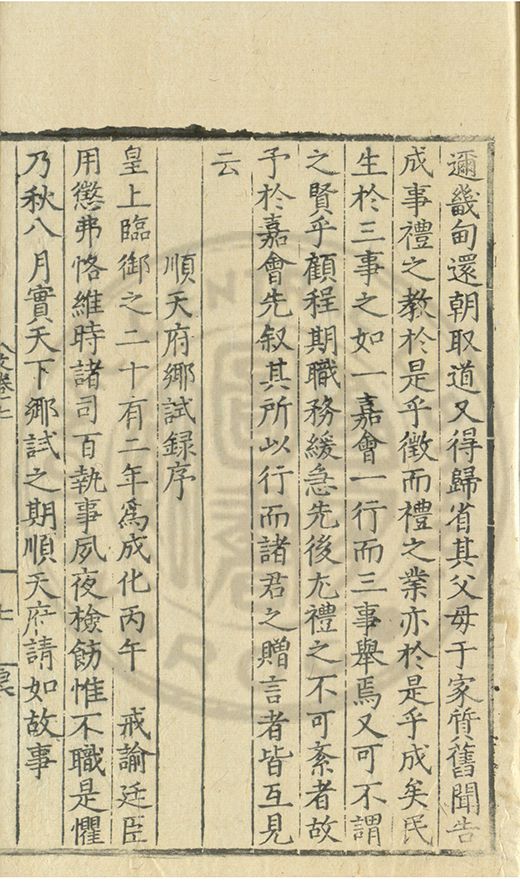 邇畿甸還朝取道又得歸省其父母于家質舊聞告
成事禮之教於是乎徵而禮之業亦於是乎成矣民
生於三事之如一嘉會一行而三事舉焉又可不謂
之賢乎顧程期職務緩急先後尤禮之不可紊者故
予於嘉會先叙其所以行而諸君之贈言者皆互見
云
順天府鄉試録序
皇上臨御之二十有二年爲成化丙午 戒諭廷臣
用懲弗恪維時諸司百執事夙夜檢飭惟不職是懼
乃秋八月實天下鄉試之期順天府請如故事